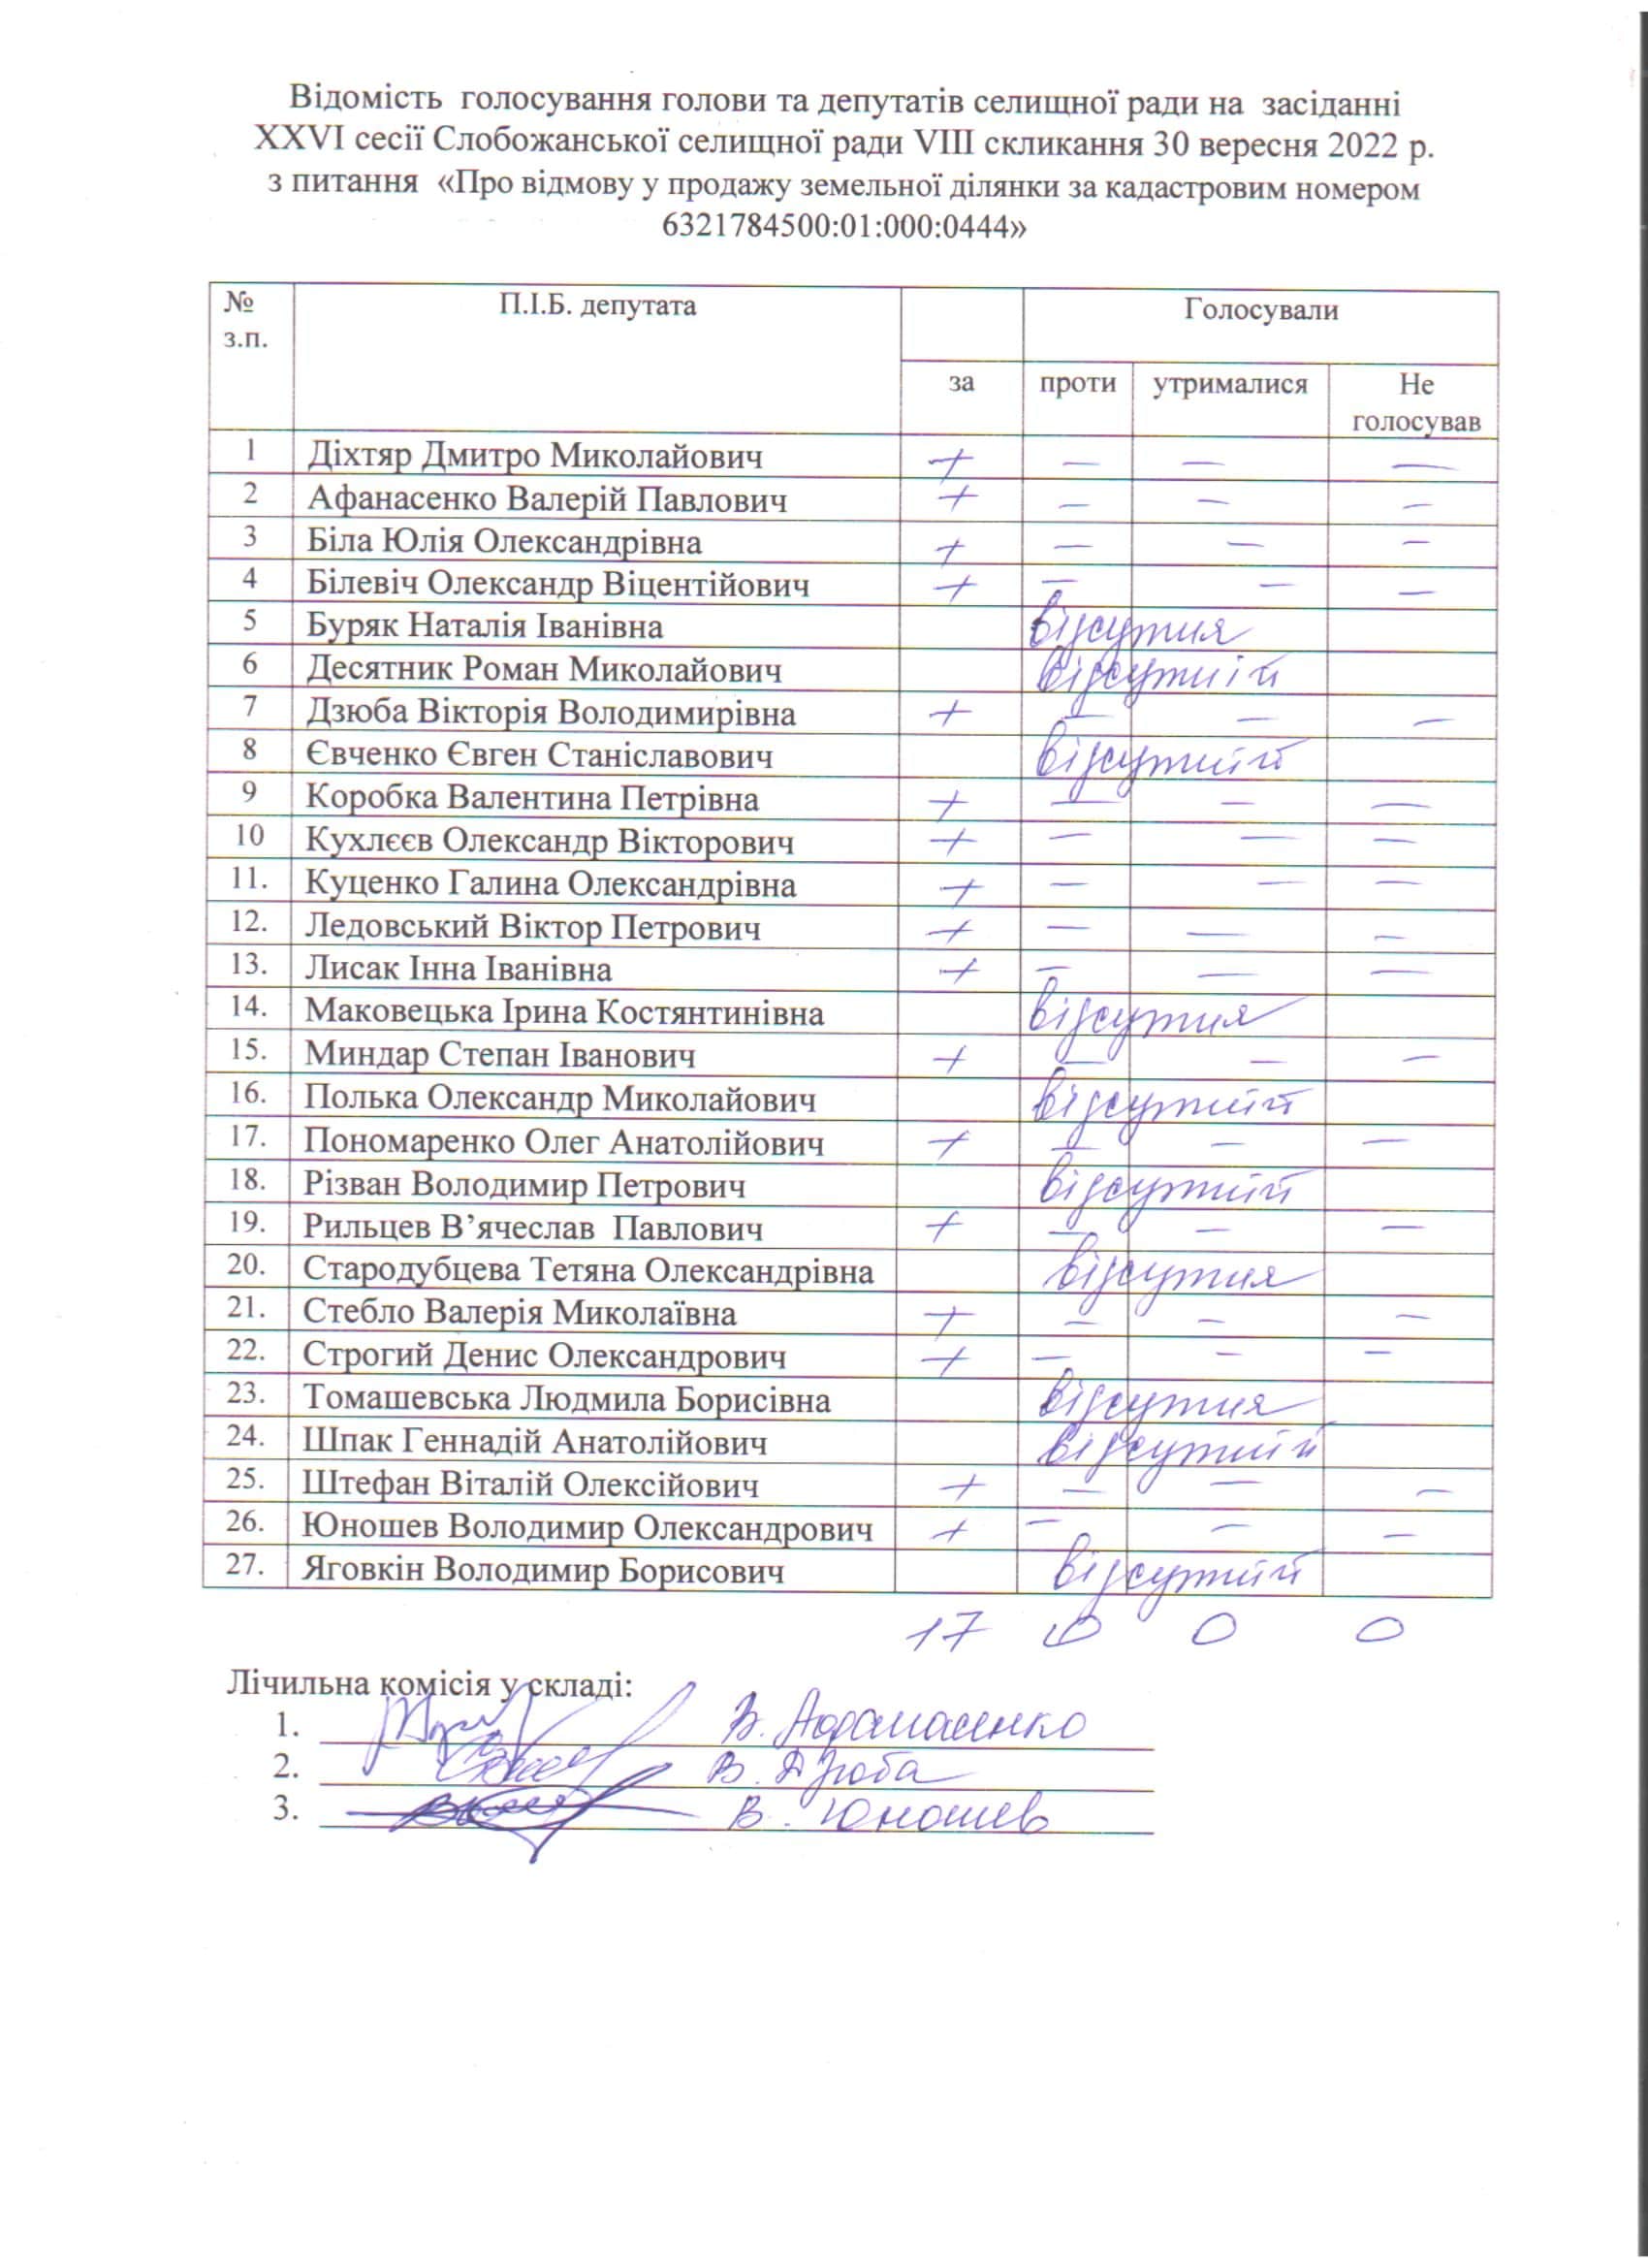 Відомість голосування голови та депутатів селищної ради на засіданні
XXVI сесії Слобожанської селищної ради VIII скликання 30 вересня 2022 р.
з питання «Про відмову у продажу земельної ділянки за кадастровим номером
6321784500:01:000:0444»
№ з.п. П.І.Б. депутата Голосували
за проти утрималися Не голосував
1 Діхтяр Дмитро Миколайович + — — —
2 Афанасенко Валерій Павлович + — — —
3 Біла Юлія Олександрівна + — — —
4 Білевіч Олександр Віцентійович + — — —
5 Буряк Наталія Іванівна відсутня
6 Десятник Роман Миколайович відсутній
7 Дзюба Вікторія Володимирівна + — — —
8 Євченко Євген Станіславович відсутній
9 Коробка Валентина Петрівна + — — —
10 Кухлєєв Олександр Вікторович + — — —
11. Куценко Галина Олександрівна + — — —
12. Ледовський Віктор Петрович + — — —
13. Лисак Інна Іванівна + — — —
14. Маковецька Ірина Костянтинівна відсутня
15. Миндар Степан Іванович + — — —
16. Полька Олександр Миколайович відсутній
17. Пономаренко Олег Анатолійович + — — —
18. Різван Володимир Петрович відсутній
19. Рильцев В’ячеслав Павлович + — — —
20. Стародубцева Тетяна Олександрівна відсутня
21. Стебло Валерія Миколаївна + — — —
22. Строгий Денис Олександрович + — — —
23. Томашевська Людмила Борисівна відсутня
24. Шпак Геннадій Анатолійович відсутній
25. Штефан Віталій Олексійович + — — —
26. Юношев Володимир Олександрович + — — —
27. Яговкін Володимир Борисович відсутній
17 0 0 0
Лічильна комісія у складі:
1. В. Афанасенко
2. В. Дзюба
3. В. Юношев